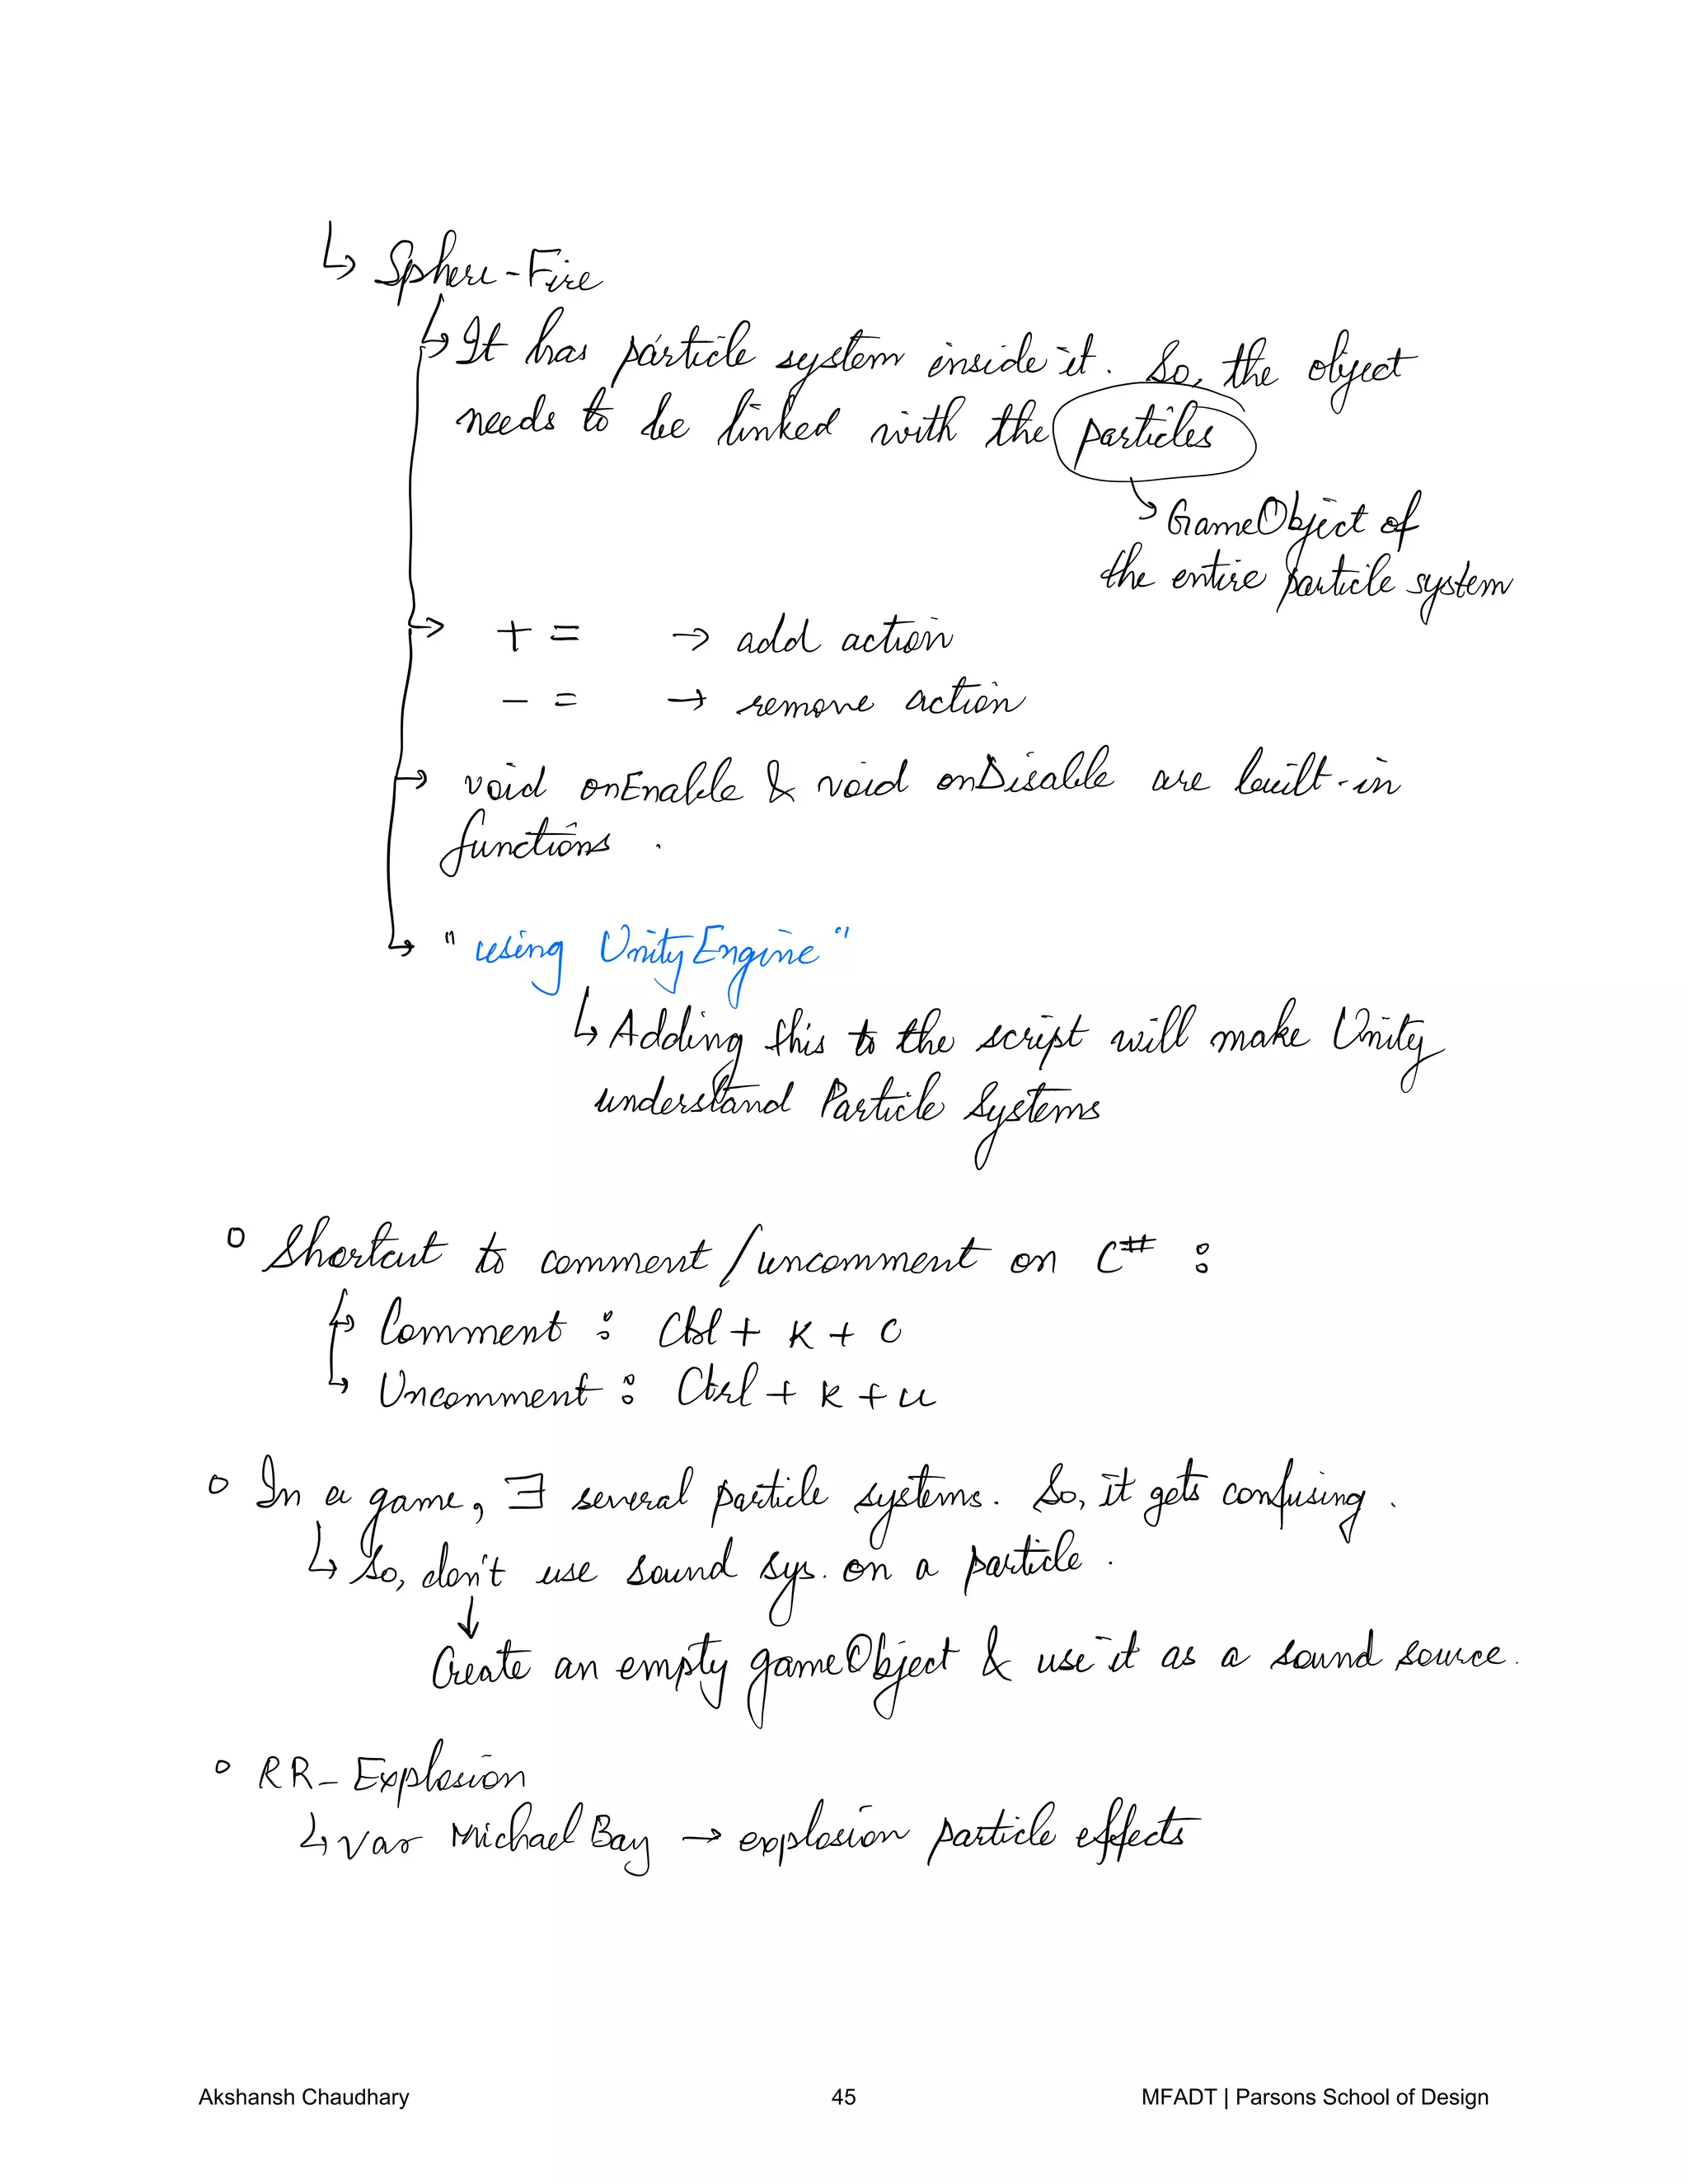 ↳ Sphere-Fire
↳ It has particle system inside it. So, the object
needs to be linked with the particles
↳ GameObject of
the entire particle system
→ += → add action
-= → remove action
→ void onEnable & void onDisable are built-in
functions.
↳ "using UnityEngine"
↳ Adding this to the script will make Unity
understand Particle Systems
o Shortcut to comment/uncomment on C# :
↳ Comment : Ctrl + K + C
↳ Uncomment : Ctrl + K + U
o In a game, ∃ several particle systems. So, it gets confusing.
↳ So, don't use sound sys. on a particle.
↓
Create an empty gameObject & use it as a sound source.
o RR_Explosion
↳ var Michael Bay → explosion particle effects
Akshansh Chaudhary 45 MFADT | Parsons School of Design